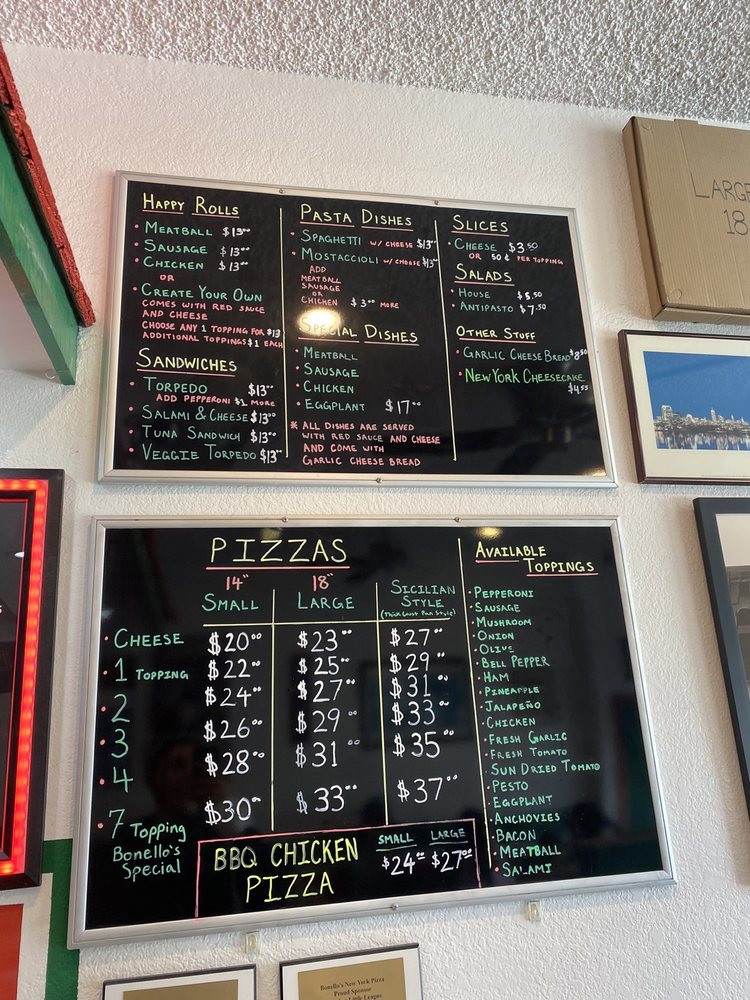 HAPPY ROLLS
• MEATBALL $13⁰⁰
• SAUSAGE $13⁰⁰
• CHICKEN $13⁰⁰
OR
• CREATE YOUR OWN
COMES WITH RED SAUCE
AND CHEESE
CHOOSE ANY 1 TOPPING FOR $13
ADDITIONAL TOPPINGS $1 EACH
SANDWICHES
• TORPEDO $13⁰⁰
ADD PEPPERONI $1 MORE
• SALAMI & CHEESE $13⁰⁰
• TUNA SANDWICH $13⁰⁰
• VEGGIE TORPEDO $13⁰⁰
PASTA DISHES
• SPAGHETTI W/ CHEESE $13⁰⁰
• MOSTACCIOLI W/ CHEESE $13⁰⁰
ADD
MEATBALL
SAUSAGE
OR
CHICKEN $3⁰⁰ MORE
SPECIAL DISHES
• MEATBALL
• SAUSAGE
• CHICKEN
• EGGPLANT $17⁰⁰
* ALL DISHES ARE SERVED
WITH RED SAUCE AND CHEESE
AND COME WITH
GARLIC CHEESE BREAD
SLICES
• CHEESE $3⁵⁰
OR 50¢ PER TOPPING
SALADS
• HOUSE $5.50
• ANTIPASTO $7.50
OTHER STUFF
• GARLIC CHEESE BREAD $8⁵⁰
• NEW YORK CHEESECAKE
$4.55
LARGE
18
PIZZAS
14" 18"
SMALL LARGE SICILIAN STYLE
(Thick Crust Pan Style)
• CHEESE $20⁰⁰ $23⁰⁰ $27⁰⁰
• 1 TOPPING $22⁰⁰ $25⁰⁰ $29⁰⁰
2 $24⁰⁰ $27⁰⁰ $31⁰⁰
3 $26⁰⁰ $29⁰⁰ $33⁰⁰
4 $28⁰⁰ $31⁰⁰ $35⁰⁰
• 7 TOPPING $30⁰⁰ $33⁰⁰ $37⁰⁰
Bonello's
Special
BBQ CHICKEN
PIZZA
SMALL LARGE
$24⁰⁰ $27⁰⁰
AVAILABLE
TOPPINGS
• PEPPERONI
• SAUSAGE
• MUSHROOM
• ONION
• OLIVE
• BELL PEPPER
• HAM
• PINEAPPLE
• JALAPEÑO
• CHICKEN
• FRESH GARLIC
• FRESH TOMATO
• SUN DRIED TOMATO
• PESTO
• EGGPLANT
• ANCHOVIES
• BACON
• MEATBALL
• SALAMI
Bonello's New York Pizza
Proud Sponsor
Little League